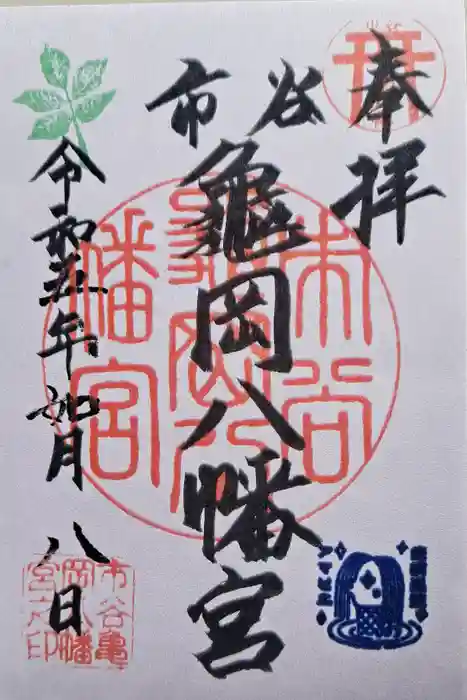 奉拝
市谷
亀岡八幡宮
令和五年如月八日
市谷
亀岡八
幡宮
市谷亀
岡八幡
宮之印